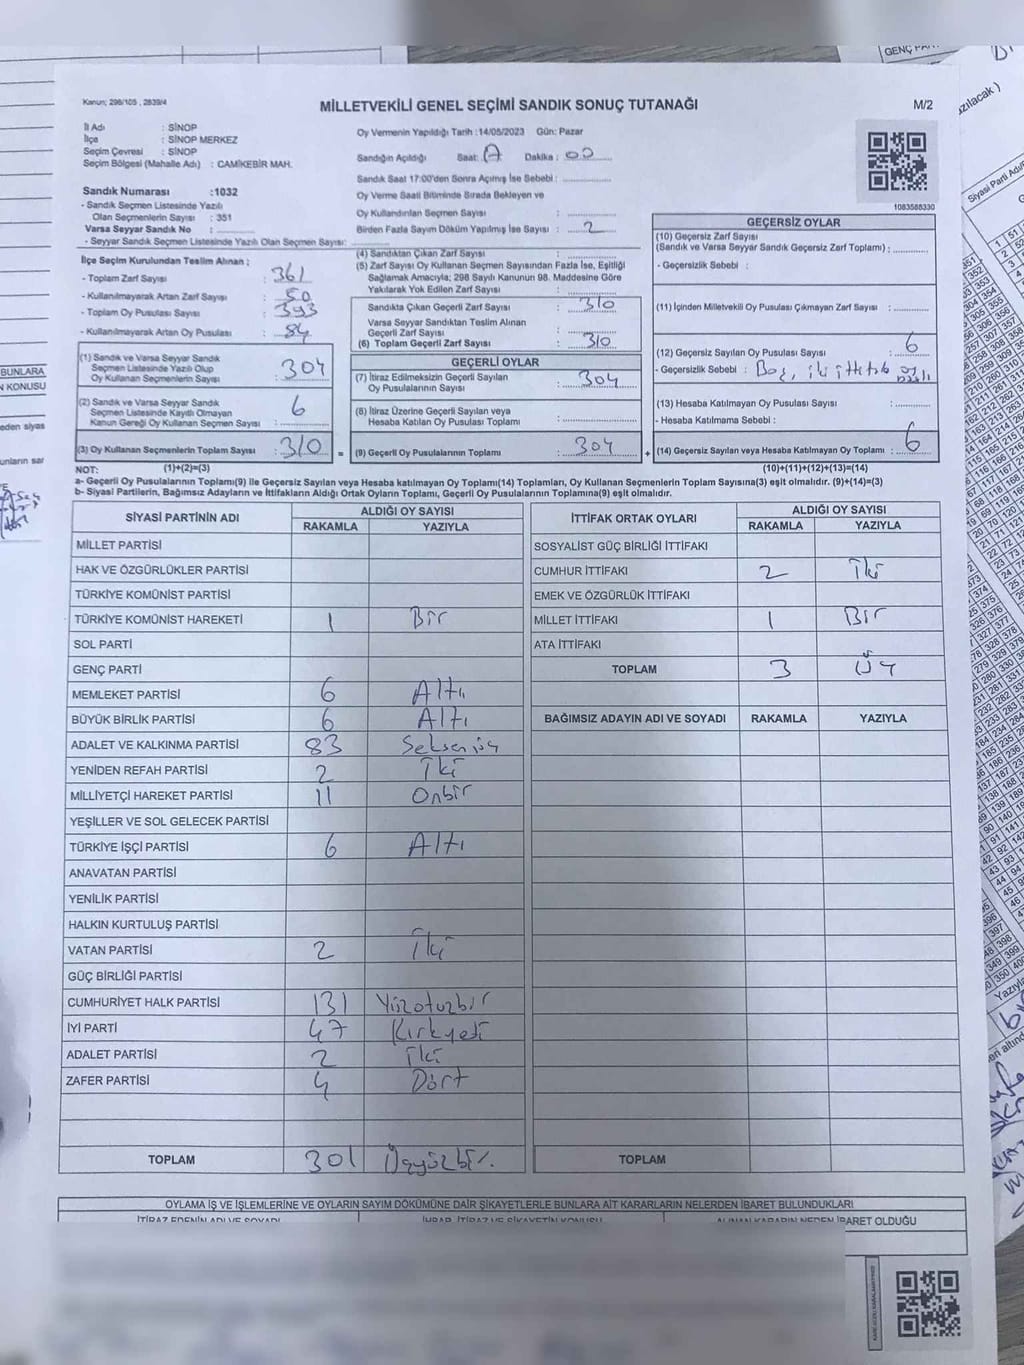 GENÇ
Kanun; 298/105 , 2839/4
MİLLETVEKİLİ GENEL SEÇİMİ SANDIK SONUÇ TUTANAĞI
M/2
İl Adı : SİNOP
İlçe : SİNOP MERKEZ
Seçim Çevresi : SİNOP
Seçim Bölgesi (Mahalle Adı) : CAMİKEBİR MAH.
Oy Vermenin Yapıldığı Tarih :14/05/2023 Gün: Pazar
Sandığın Açıldığı Saat: Dakika : 00
Sandık Saat 17:00'den Sonra Açılmış İse Sebebi :
Oy Verme Saati Bitiminde Sırada Bekleyen ve
Oy Kullandırılan Seçmen Sayısı :
Birden Fazla Sayım Döküm Yapılmış İse Sayısı : 2
1083588330
Sandık Numarası :1032
- Sandık Seçmen Listesinde Yazılı
Olan Seçmenlerin Sayısı : 351
Varsa Seyyar Sandık No :
- Seyyar Sandık Seçmen Listesinde Yazılı Olan Seçmen Sayısı:
İlçe Seçim Kurulundan Teslim Alınan ;
- Toplam Zarf Sayısı : 361
- Kullanılmayarak Artan Zarf Sayısı : 50
- Toplam Oy Pusulası Sayısı : 393
- Kullanılmayarak Artan Oy Pusulası : 84
(1) Sandık ve Varsa Seyyar Sandık
Seçmen Listesinde Yazılı Olup
Oy Kullanan Seçmenlerin Sayısı : 304
(2) Sandık ve Varsa Seyyar Sandık
Seçmen Listesinde Kayıtlı Olmayan
Kanun Gereği Oy Kullanan Seçmen Sayısı : 6
(3) Oy Kullanan Seçmenlerin Toplam Sayısı : 310 =
(4) Sandıktan Çıkan Zarf Sayısı :
(5) Zarf Sayısı Oy Kullanan Seçmen Sayısından Fazla İse, Eşitliği
Sağlamak Amacıyla; 298 Sayılı Kanunun 98. Maddesine Göre
Yakılarak Yok Edilen Zarf Sayısı :
Sandıkta Çıkan Geçerli Zarf Sayısı : 310
Varsa Seyyar Sandıktan Teslim Alınan
Geçerli Zarf Sayısı :
(6) Toplam Geçerli Zarf Sayısı : 310
GEÇERLİ OYLAR
(7) İtiraz Edilmeksizin Geçerli Sayılan
Oy Pusulalarının Sayısı : 304
(8) İtiraz Üzerine Geçerli Sayılan veya
Hesaba Katılan Oy Pusulası Toplamı :
(9) Geçerli Oy Pusulalarının Toplamı : 304 +
GEÇERSİZ OYLAR
(10) Geçersiz Zarf Sayısı
(Sandık ve Varsa Seyyar Sandık Geçersiz Zarf Toplamı) :
- Geçersizlik Sebebi :
(11) İçinden Milletvekili Oy Pusulası Çıkmayan Zarf Sayısı :
(12) Geçersiz Sayılan Oy Pusulası Sayısı : 6
- Geçersizlik Sebebi : Boş, iki ittifak
(13) Hesaba Katılmayan Oy Pusulası Sayısı :
- Hesaba Katılmama Sebebi :
(14) Geçersiz Sayılan veya Hesaba Katılmayan Oy Toplamı : 6
NOT: (1)+(2)=(3) (10)+(11)+(12)+(13)=(14)
a- Geçerli Oy Pusulalarının Toplamı(9) ile Geçersiz Sayılan veya Hesaba katılmayan Oy Toplamı(14) Toplamları, Oy Kullanan Seçmenlerin Toplam Sayısına(3) eşit olmalıdır. (9)+(14)=(3)
b- Siyasi Partilerin, Bağımsız Adayların ve İttifakların Aldığı Ortak Oyların Toplamı, Geçerli Oy Pusulalarının Toplamına(9) eşit olmalıdır.
SİYASİ PARTİNİN ADI ALDIĞI OY SAYISI
RAKAMLA YAZIYLA
MİLLET PARTİSİ
HAK VE ÖZGÜRLÜKLER PARTİSİ
TÜRKİYE KOMÜNİST PARTİSİ
TÜRKİYE KOMÜNİST HAREKETİ 1 Bir
SOL PARTİ
GENÇ PARTİ
MEMLEKET PARTİSİ 6 Altı
BÜYÜK BİRLİK PARTİSİ 6 Altı
ADALET VE KALKINMA PARTİSİ 83 Seksenüç
YENİDEN REFAH PARTİSİ 2 İki
MİLLİYETÇİ HAREKET PARTİSİ 11 Onbir
YEŞİLLER VE SOL GELECEK PARTİSİ
TÜRKİYE İŞÇİ PARTİSİ 6 Altı
ANAVATAN PARTİSİ
YENİLİK PARTİSİ
HALKIN KURTULUŞ PARTİSİ
VATAN PARTİSİ 2 İki
GÜÇ BİRLİĞİ PARTİSİ
CUMHURİYET HALK PARTİSİ 131 Yüzotuzbir
İYİ PARTİ 47 Kırkyedi
ADALET PARTİSİ 2 İki
ZAFER PARTİSİ 4 Dört
TOPLAM 301 Üçyüzbir
İTTİFAK ORTAK OYLARI ALDIĞI OY SAYISI
RAKAMLA YAZIYLA
SOSYALİST GÜÇ BİRLİĞİ İTTİFAKI
CUMHUR İTTİFAKI 2 İki
EMEK VE ÖZGÜRLÜK İTTİFAKI
MİLLET İTTİFAKI 1 Bir
ATA İTTİFAKI
TOPLAM 3 Üç
BAĞIMSIZ ADAYIN ADI VE SOYADI RAKAMLA YAZIYLA
TOPLAM
OYLAMA İŞ VE İŞLEMLERİNE VE OYLARIN SAYIM DÖKÜMÜNE DAİR ŞİKAYETLERLE BUNLARA AİT KARARLARIN NELERDEN İBARET BULUNDUKLARI
İTİRAZ EDENİN ADI VE SOYADI İHBAR, İTİRAZ VE ŞİKAYETİN KONUSU ALINAN KARARIN NEDEN İBARET OLDUĞU
BUNLARA
N KONUSU
eden siyas
unların sar
zılacak )
Siyasi Parti Adı
Yazıyla
eri altınd